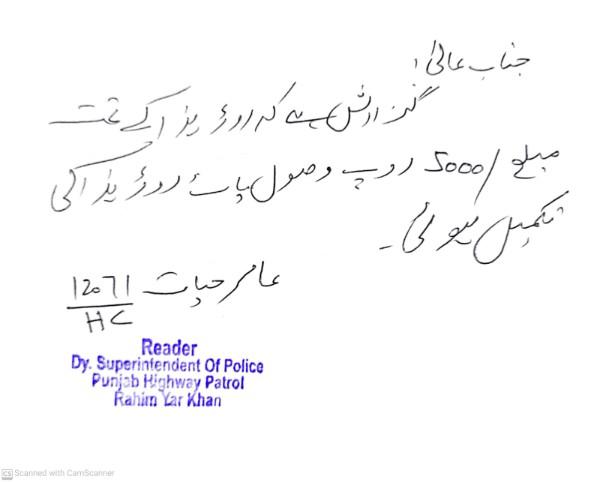 جناب عالی!
گزارش ہے کہ روڑ ہذا کے تحت
مبلغ /5000 روپے وصول پائے روڑ ہذا کی
تکمیل ہوئی۔
عامر حیات 12071
HC
Reader
Dy. Superintendent Of Police
Punjab Highway Patrol
Rahim Yar Khan
CS Scanned with CamScanner